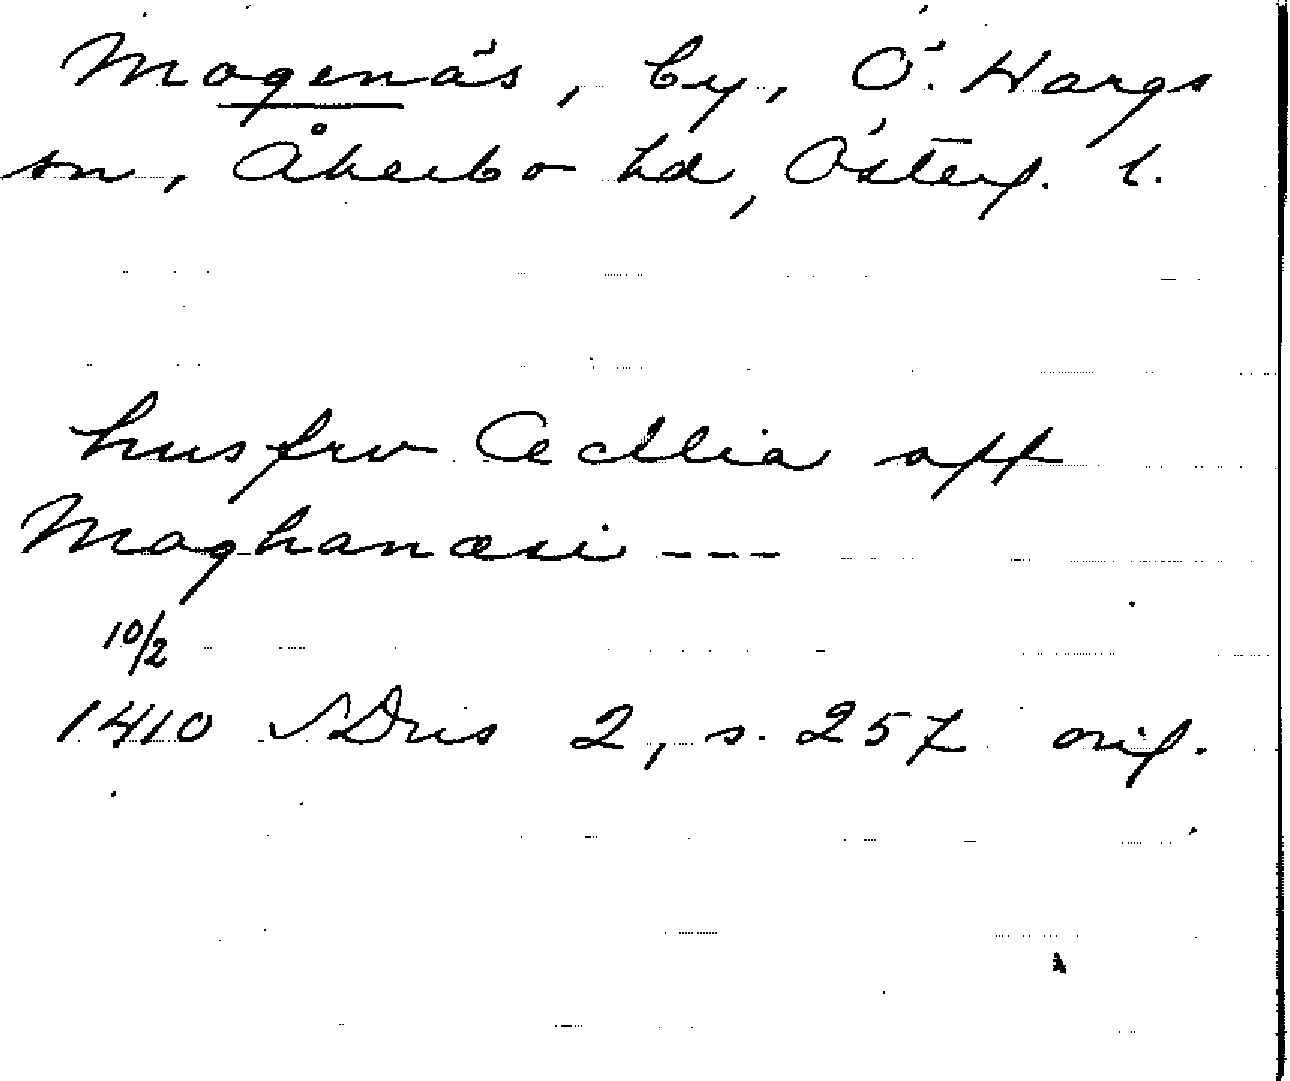 Mogenäs, by, Ö. Hargs
sn, Åkerbo hd, Österg. l.
husfrv Cecilia aff
Maghanæsi ---
10/2
1410 SDns 2, s. 257 orig.